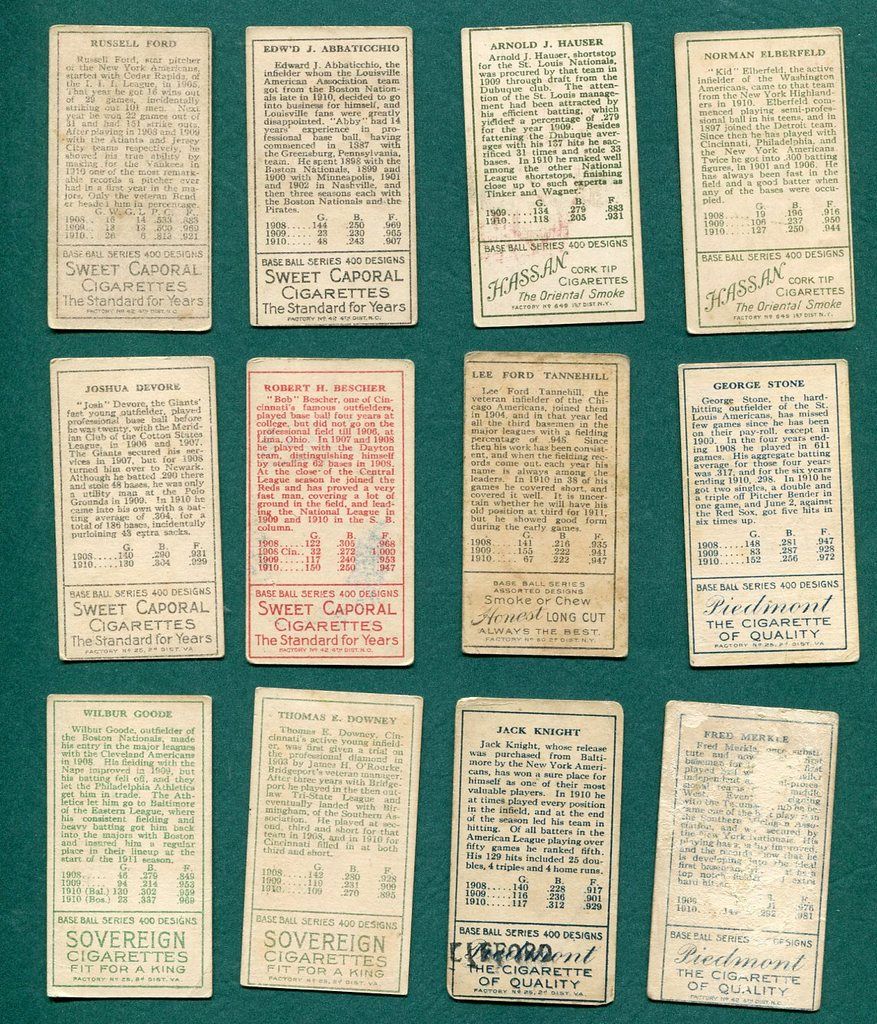 RUSSELL FORD
Russell Ford, star pitcher
of the New York Americans,
started with Cedar Rapids, of
the I. I. I. League, in 1905.
That year he got 16 wins out
of 29 games, incidentally
striking out 191 men. Next
year he won 22 games out of
31 and had 151 strike outs.
After playing in 1908 and 1909
with the Atlanta and Jersey
City teams respectively, he
showed his true ability by
making for the Yankees in
1910 one of the most remark-
able records a pitcher ever
had in a first year in the ma-
jors. Only the veteran Bend
er headed him in percentage.
G. W. G. L. P. C. F.
1908
1909
1910
BASE BALL SERIES 400 DESIGNS
SWEET CAPORAL
CIGARETTES
The Standard for Years
FACTORY No 42 4TH DIST. N.C.
EDW'D J. ABBATICCHIO
Edward J. Abbaticchio, the
infielder whom the Louisville
American Association team
got from the Boston Nation-
als late in 1910, decided to go
into business for himself, and
Louisville fans were greatly
disappointed. "Abby" had 14
years' experience in pro-
fessional base ball, having
commenced in 1897 with
the Greensburg, Pennsylvania,
team. He spent 1898 with the
Boston Nationals, 1899 and
1900 with Minneapolis, 1901
and 1902 in Nashville, and
then three seasons each with
the Boston Nationals and the
Pirates.
G. B. F.
1908.....144 .250 .969
1909..... 23 .230 .965
1910..... 48 .243 .907
BASE BALL SERIES 400 DESIGNS
SWEET CAPORAL
CIGARETTES
The Standard for Years
FACTORY No 42 4TH DIST. N.C.
ARNOLD J. HAUSER
Arnold J. Hauser, shortstop
for the St. Louis Nationals,
was procured by that team in
1909 through draft from the
Dubuque club. The atten-
tion of the St. Louis manage-
ment had been attracted by
his efficient batting, which
yielded a percentage of .279
for the year 1909. Besides
fattening the Dubuque aver-
ages with his 137 hits he sac-
rificed 31 times and stole 33
bases. In 1910 he ranked well
among the other National
League shortstops, finishing
close up to such experts as
Tinker and Wagner.
G. B. F.
1909.....134 .279 .883
1910.....118 .205 .931
BASE BALL SERIES 400 DESIGNS
HASSAN
CORK TIP
CIGARETTES
The Oriental Smoke
FACTORY No 649 1ST DIST. N.Y.
NORMAN ELBERFELD
"Kid" Elberfeld, the active
infielder of the Washington
Americans, came to that team
from the New York Highland-
ers in 1910. Elberfeld com-
menced playing semi-profes-
sional ball in his teens, and in
1897 joined the Detroit team.
Since then he has played with
Cincinnati, Philadelphia, and
the New York Americans.
Twice he got into .300 batting
figures, in 1901 and 1906. He
has always been fast in the
field and a good batter when
any of the bases were occu-
pied.
G. B. F.
1908..... 19 .196 .916
1909.....106 .237 .950
1910.....127 .250 .944
BASE BALL SERIES 400 DESIGNS
HASSAN
CORK TIP
CIGARETTES
The Oriental Smoke
FACTORY No 649 1ST DIST. N.Y.
JOSHUA DEVORE
"Josh" Devore, the Giants'
fast young outfielder, played
professional base ball before
he was twenty, with the Merid-
ian Club of the Cotton States
League, in 1906 and 1907.
The Giants secured his ser-
vices in 1907, but for 1908
turned him over to Newark.
Although he batted .290 there
and stole 48 bases, he was only
a utility man at the Polo
Grounds in 1909. In 1910 he
came into his own with a bat-
ting average of .304, for a
total of 186 bases, incidentally
purloining 43 extra sacks.
G. B. F.
1908.....140 .290 .931
1910.....130 .304 .929
BASE BALL SERIES 400 DESIGNS
SWEET CAPORAL
CIGARETTES
The Standard for Years
FACTORY No 25, 2D DIST. VA.
ROBERT H. BESCHER
"Bob" Bescher, one of Cin-
cinnati's famous outfielders,
played base ball four years at
college, but did not go on the
professional field till 1906, at
Lima, Ohio. In 1907 and 1908
he played with the Dayton
team, distinguishing himself
by stealing 62 bases in 1908.
At the close of the Central
League season he joined the
Reds and has proved a very
fast man, covering a lot of
ground in the field, and lead-
ing the National League in
1909 and 1910 in the S. B.
column.
G. B. F.
1908.....122 .305 .968
1908 Cin.. 32 .272 1.000
1909.....117 .240 .953
1910.....150 .250 .947
BASE BALL SERIES 400 DESIGNS
SWEET CAPORAL
CIGARETTES
The Standard for Years
FACTORY No 42 4TH DIST. N.C.
LEE FORD TANNEHILL
Lee Ford Tannehill, the
veteran infielder of the Chi-
cago Americans, joined them
in 1904, and in that year led
all the third basemen in the
major leagues with a fielding
percentage of .948. Since
then his work has been consist-
ent, and when the fielding rec-
ords come out each year his
name is always among the
leaders. In 1910 in 38 of his
games he covered short, and
covered it well. It is uncer-
tain whether he will have his
old position at third for 1911,
but he showed good form
during the early games.
G. B. F.
1908.....141 .216 .935
1909.....155 .222 .941
1910..... 67 .222 .947
BASE BALL SERIES
ASSORTED DESIGNS
Smoke or Chew
Honest LONG CUT
ALWAYS THE BEST.
FACTORY No 50 2D DIST. N.Y.
GEORGE STONE
George Stone, the hard-
hitting outfielder of the St.
Louis Americans, has missed
few games since he has been
on their pay-roll, except in
1909. In the four years end-
ing 1908 he played in 611
games. His aggregate batting
average for those four years
was .317, and for the six years
ending 1910, .298. In 1910 he
got two singles, a double and
a triple off Pitcher Bender in
one game, and June 2, against
the Red Sox, got five hits in
six times up.
G. B. F.
1908.....148 .281 .947
1909..... 83 .287 .928
1910.....152 .256 .972
BASE BALL SERIES 400 DESIGNS
Piedmont
THE CIGARETTE
OF QUALITY
FACTORY No 25, 2D DIST. VA.
WILBUR GOODE
Wilbur Goode, outfielder of
the Boston Nationals, made
his entry in the major leagues
with the Cleveland Americans
in 1908. His fielding with the
Naps improved in 1909, but
his batting fell off, and they
let the Philadelphia Athletics
get him in trade. The Ath-
letics let him go to Baltimore
of the Eastern League, where
his consistent fielding and
heavy batting got him back
into the majors with Boston
and insured him a regular
place in their lineup at the
start of the 1911 season.
G. B. F.
1908..... 46 .279 .849
1909..... 94 .214 .953
1910 (Bal.) 130 .302 .959
1910 (Bos.) 23 .337 .969
BASE BALL SERIES 400 DESIGNS
SOVEREIGN
CIGARETTES
FIT FOR A KING
FACTORY No 25, 2D DIST. VA.
THOMAS E. DOWNEY
Thomas E. Downey, Cin-
cinnati's active young infield-
er, was first given a trial on
the professional diamond in
1903 by James H. O'Rourke,
Bridgeport's veteran manager.
After three years with Bridge-
port he played in the then out-
law Tri-State League and
eventually landed with Birm-
ingham, of the Southern As-
sociation. He played at sec-
ond, third and short for that
team in 1908, and in 1910 for
Cincinnati filled in at both
third and short.
G. B. F.
1908.....142 .280 .928
1909.....119 .231 .909
1910.....109 .270 .895
BASE BALL SERIES 400 DESIGNS
SOVEREIGN
CIGARETTES
FIT FOR A KING
FACTORY No 25, 2D DIST. VA.
JACK KNIGHT
Jack Knight, whose release
was purchased from Balti-
more by the New York Ameri-
cans, has won a sure place for
himself as one of their most
valuable players. In 1910 he
at times played every position
in the infield, and at the end
of the season led his team in
hitting. Of all batters in the
American League playing over
fifty games he ranked fifth.
His 129 hits included 25 dou-
bles, 4 triples and 4 home runs.
G. B. F.
1908.....140 .228 .917
1909.....116 .236 .901
1910.....117 .312 .929
BASE BALL SERIES 400 DESIGNS
Piedmont
THE CIGARETTE
OF QUALITY
FACTORY No 25, 2D DIST. VA.
FRED MERKLE
Fred Merkle, once substi-
tute and now
baseman for
played
independent
West.
with the
one of the
the Southern
and secured by
the New York Nationals.
playing has improved,
and the records show that he
is developing into
first baseman
top notch
hard hitter.
BASE BALL SERIES DESIGNS
Piedmont
THE CIGARETTE
OF QUALITY